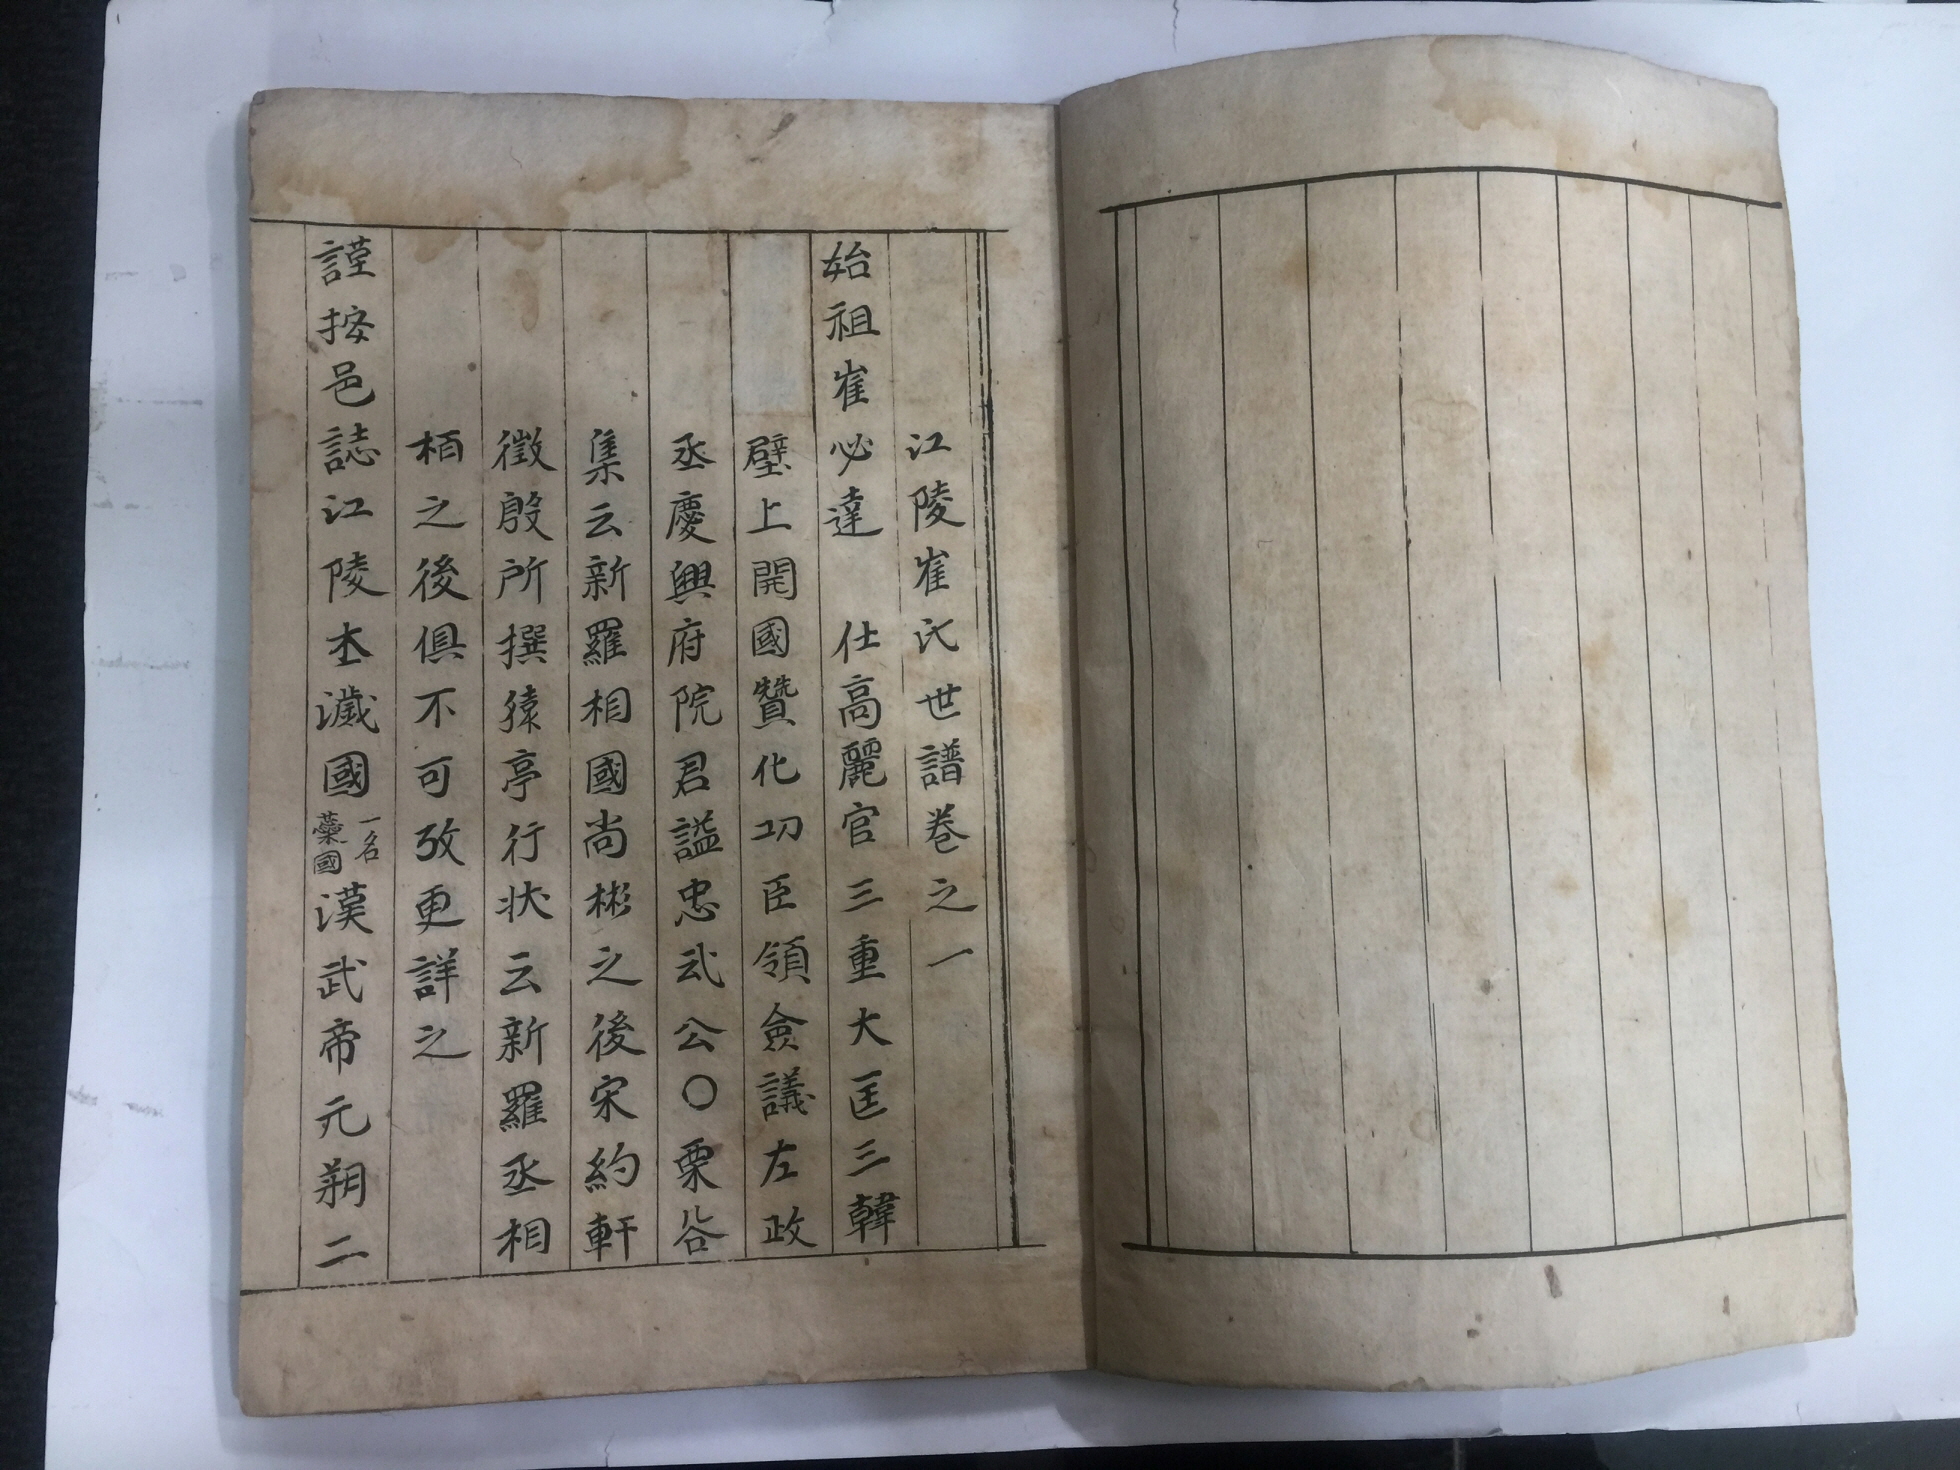 江陵崔氏世譜卷之一
始祖崔必達 仕高麗官三重大匡三韓
壁上開國贊化功臣領僉議左政
丞慶興府院君諡忠武公○栗谷
集云新羅相國尚彬之後宋約軒
徵殷所撰猿亭行狀云新羅丞相
栢之後俱不可攷更詳之
謹按邑誌江陵本濊國一名蘂國漢武帝元朔二